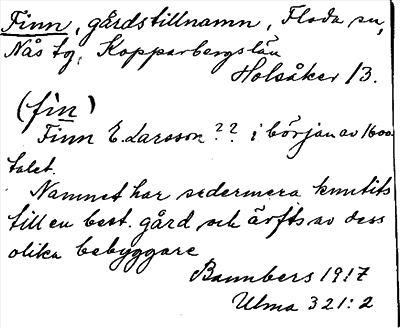 Finn, gårdstillnamn, Floda sn,
Nås tg, Kopparbergslän
Holsåker 13.
(fìn)
Finn E. Larsson ?? i början av 1600
talet.
Namnet har sedermera knutits
till en best. gård och ärfts av dess
olika bebyggare
Bannbers 1917
Ulma 321:2